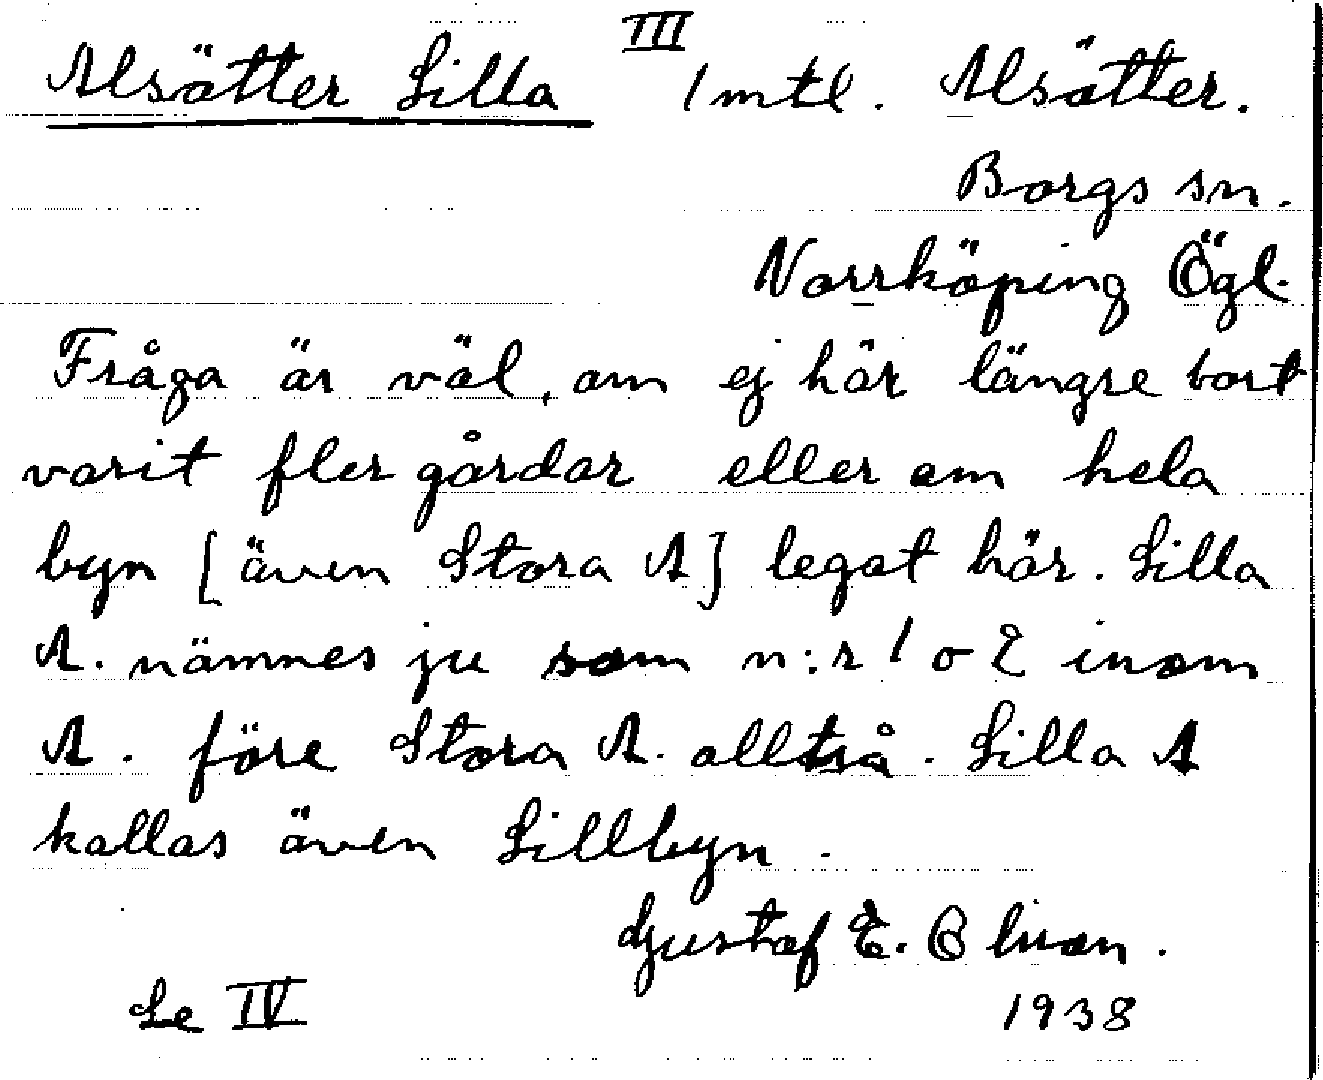 Alsätter Lilla III 1 mtl. Alsätter.
Borgs sn.
Norrköping Ögl.
Fråga är väl, om ej här längre bort
varit fler gårdar eller om hela
byn [även Stora A] legat här. Lilla
A. nämnes ju som n:r 1 o 2 inom
A. före Stora A. alltså. Lilla A
kallas även Lillbyn.
Gustaf E.
Se IV 1938